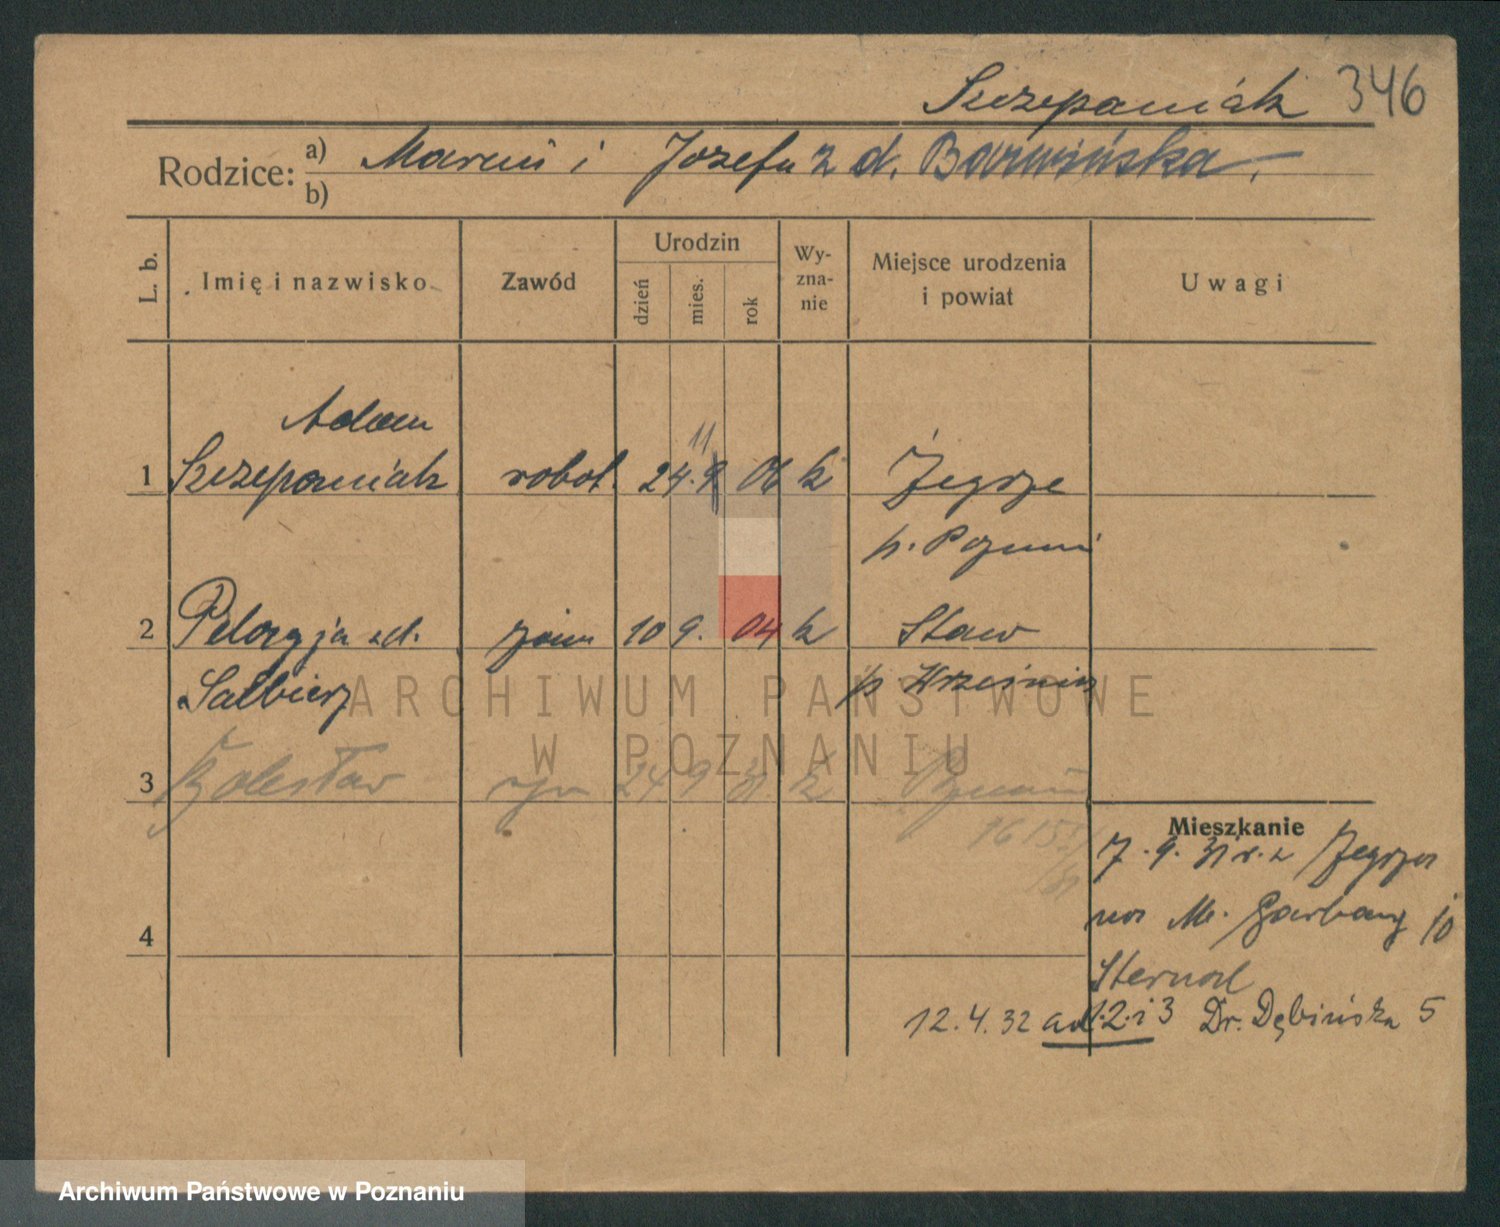 Szczepaniak 346
Rodzice: a) Marcin i Józefa z d. Barwińska.
b)
L. b. Imię i nazwisko Zawód Urodzin dzień mies. rok Wy-zna-nie Miejsce urodzenia i powiat Uwagi
Adam
11
1 Szczepaniak robot. 24. 9 06 k Żegrze
p. Poznań
2 Pelagja zd. żona 10 9. 04 k Staw
Salbierz p Września
ARCHIWUM PAŃSTWOWE
W POZNANIU
3 Bolesław syn 24 9 31 k Poznań
16155/
/31
Mieszkanie
7.9.31 r. z Żegrza
na M. Garbary 10
4
Sternal
12.4.32 ad 1.2.i 3 Dr. Dębińska 5
Archiwum Państwowe w Poznaniu